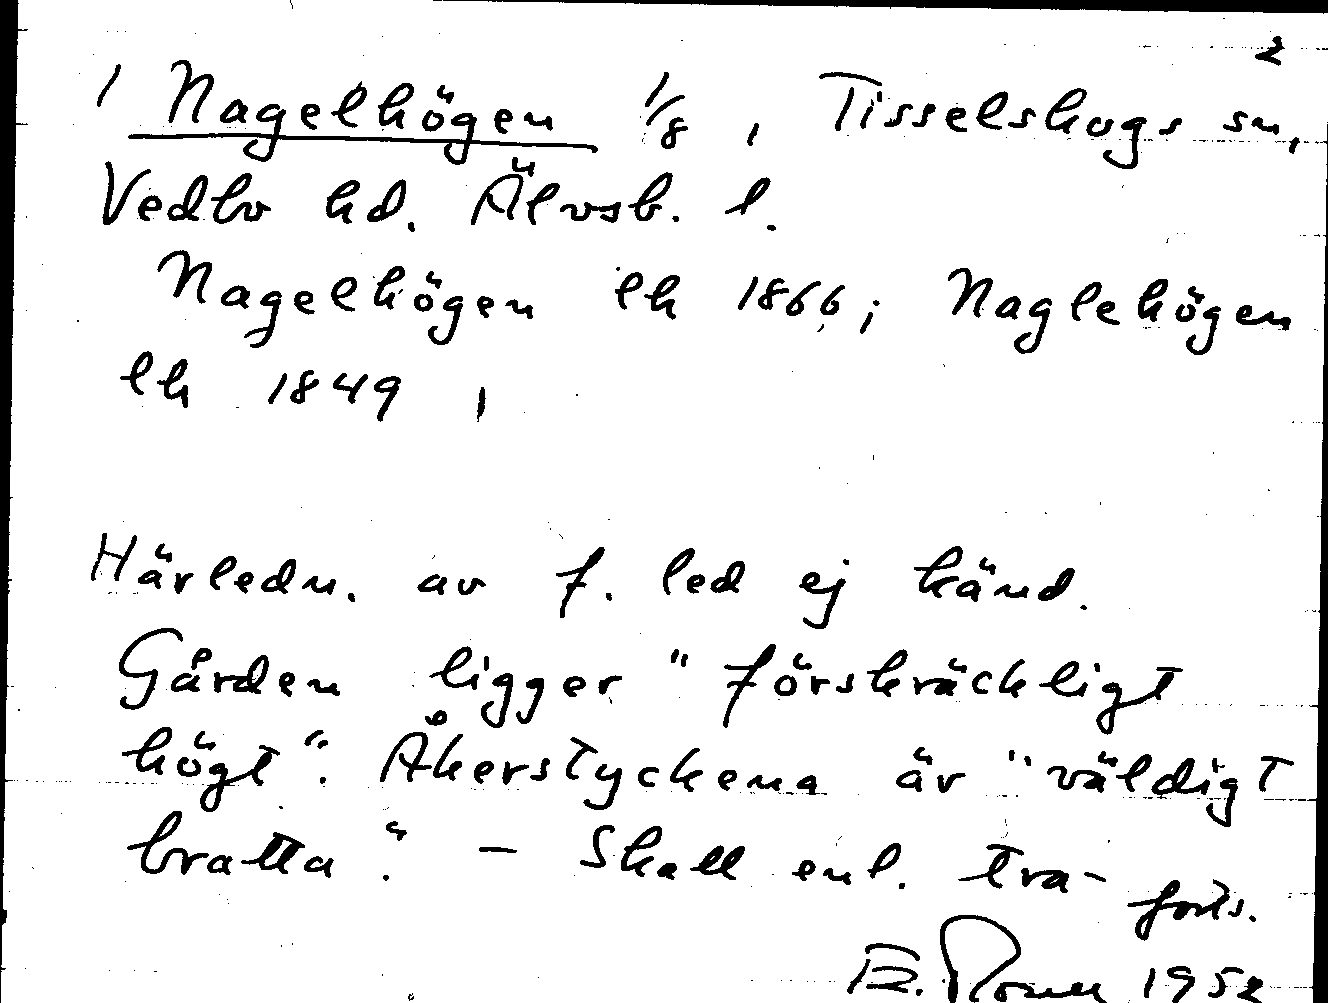 2
1 Nagelhögen 1/8, Tisselskogs sn,
Vedbo hd. Älvsb. l.
Nagelhögen lk 1866; Naglehögen
lk 1849,
Härledn. av f. led ej känd.
Gården ligger "förskräckligt
högt". Åkerstyckena är "väldigt
bratta". - Skall enl. tra-
forts.
1952